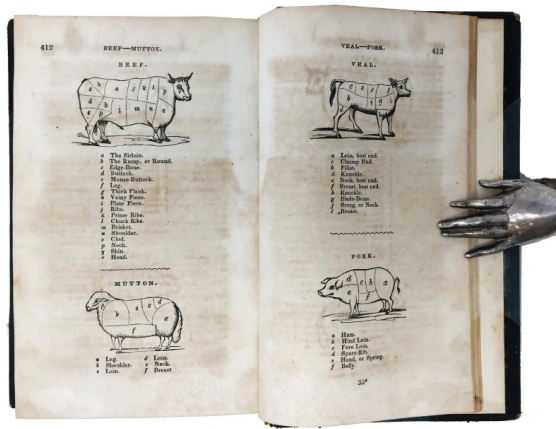 412
BEEF—MUTTON.
BEEF.
a The Sirloin.
b The Rump, or Round.
c Edge-Bone.
d Buttock.
e Mouse-Buttock.
f Leg.
g Thick Flank.
h Veiny Piece.
i Plate Piece.
j Ribs.
k Prime Ribs.
l Chuck Ribs.
m Brisket.
n Shoulder.
o Clod.
p Neck.
q Shin.
Head.
MUTTON.
a Leg. d Loin.
b Shoulder. e Neck.
Loin. f Breast
VEAL—PORK.
413
VEAL.
a Loin, best end.
Chump End.
Fillet.
d Knuckle.
Neck, best end.
f Breast, best end.
h Knuckle.
g Blade-Bone.
Scrag, or Neck.
Breast.
PORK.
a Ham.
b Hind Loin.
c Fore Loin.
d Spare-Rib.
e Hand, or Spring.
f Belly.